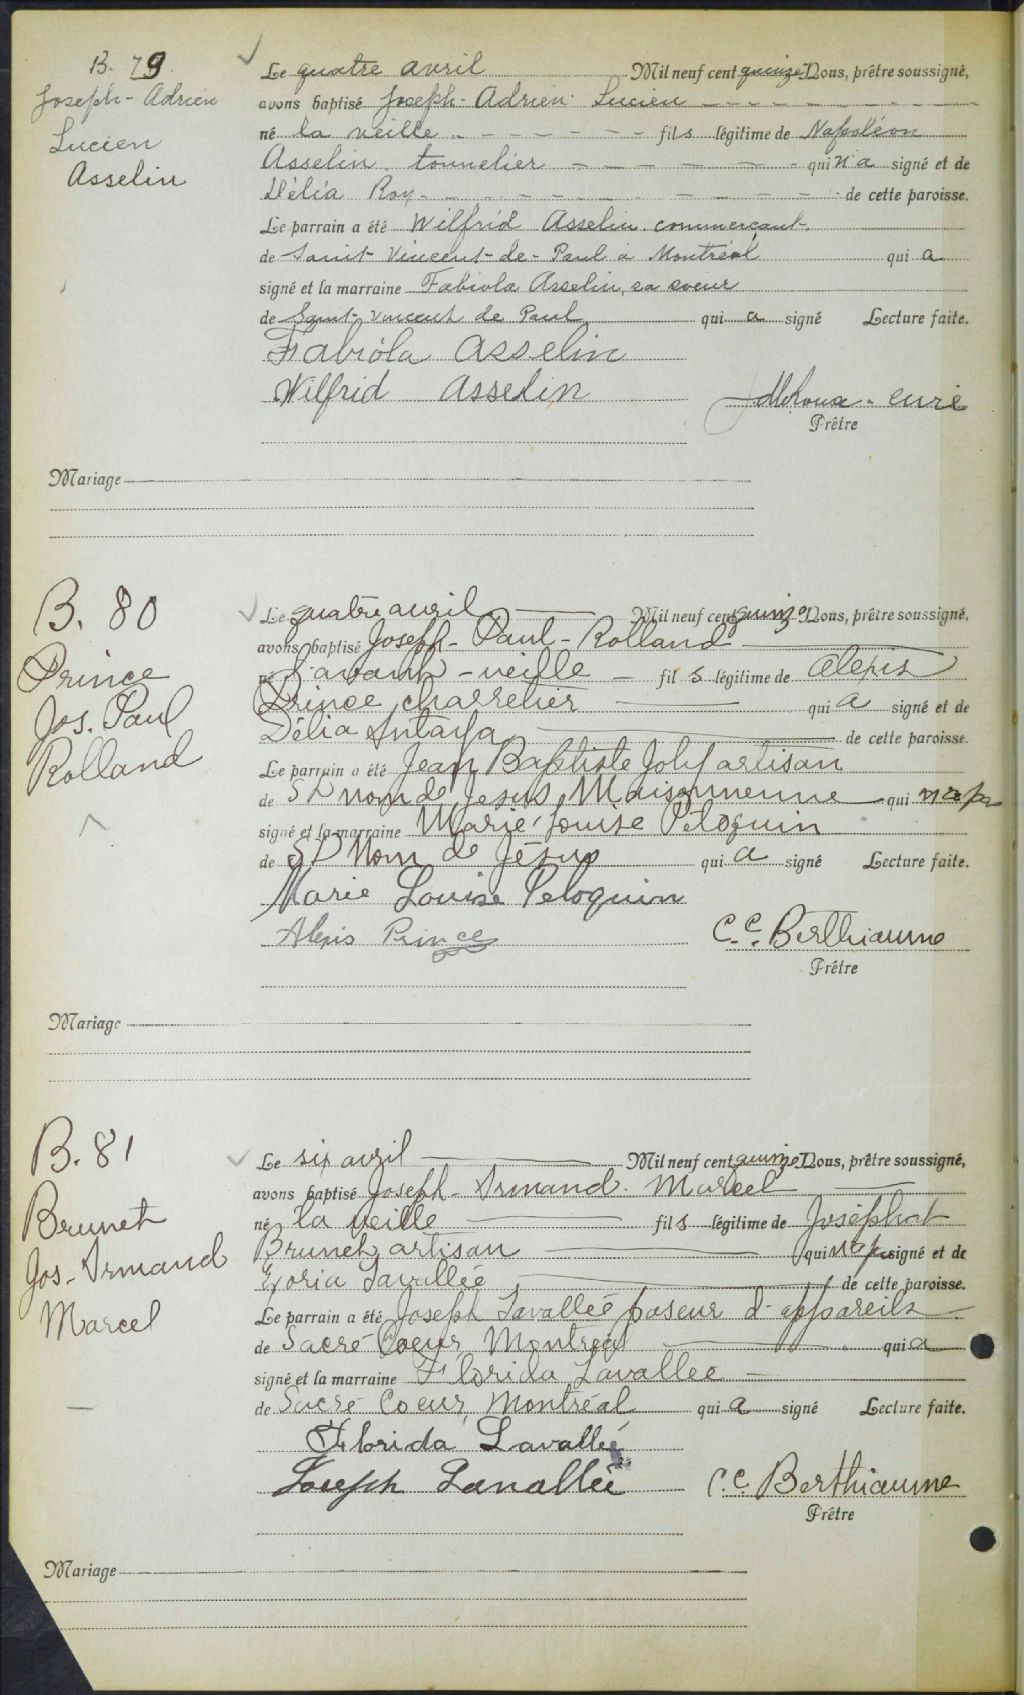 B. 79
Joseph-Adrien
Lucien
Asselin
Le quatre avril Mil neuf cent quinze Nous, prêtre soussigné,
avons baptisé Joseph-Adrien Lucien
né la veille fils légitime de Napoléon
Asselin tonnelier qui n'a signé et de
Délia Roy de cette paroisse.
Le parrain a été Wilfrid Asselin commerçant
de Saint-Vincent-de-Paul à Montréal qui a
signé et la marraine Fabiola Asselin, sa soeur
de Saint-Vincent de Paul qui a signé Lecture faite.
Fabióla Asselin
Wilfrid Asselin curé
Prêtre
Mariage
B. 80
Prince
Jos. Paul
Rolland
Le quatre avril Mil neuf cent quinze Nous, prêtre soussigné,
avons baptisé Joseph-Paul-Rolland
né l'avant-veille fils légitime de Alexis
Prince charretier qui a signé et de
Délia Antaya de cette paroisse.
Le parrain a été Jean Baptiste Joly artisan
de St Nom de Jesus, Maisonneuve qui n'a pas
signé et la marraine Marie-Louise Péloquin
de St Nom de Jésus qui a signé Lecture faite.
Marie Louise Peloquin
Alexis Prince C.C. Berthiaume
Prêtre
Mariage
B. 81
Brunet
Jos-Armand
Marcel
Le six avril Mil neuf cent quinze Nous, prêtre soussigné,
avons baptisé Joseph-Armand-Marcel
né la veille fils légitime de Joséphat
Brunet, artisan qui n'a pas signé et de
Lavallée de cette paroisse.
Le parrain a été Joseph Lavallée poseur d'appareils
de Sacré-Coeur, Montréal qui a
signé et la marraine Florida Lavallée
de Sacré Coeur, Montréal qui a signé Lecture faite.
Florida Lavallée
Joseph Lavallée C.C. Berthiaume
Prêtre
Mariage